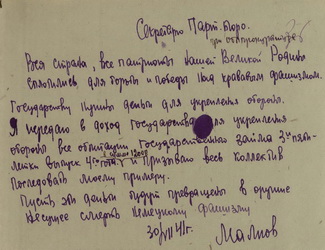 Секретарю Парт.бюро.
при облпрокуратуре
Вся страна, все патриоты нашей Великой Родины
сплотились для борьбы и победы над кровавым фашизмом.
Государству нужны деньги для укрепления обороны.
Я передаю в доход государства для укрепления
обороны все облигации Государственного займа 3й пяти-
летки выпуск 4го года и призываю весь коллектив
последовать моему примеру.
Пусть эти деньги будут превращены в орудие
несущее смерть немецкому фашизму
30/VII 41г.